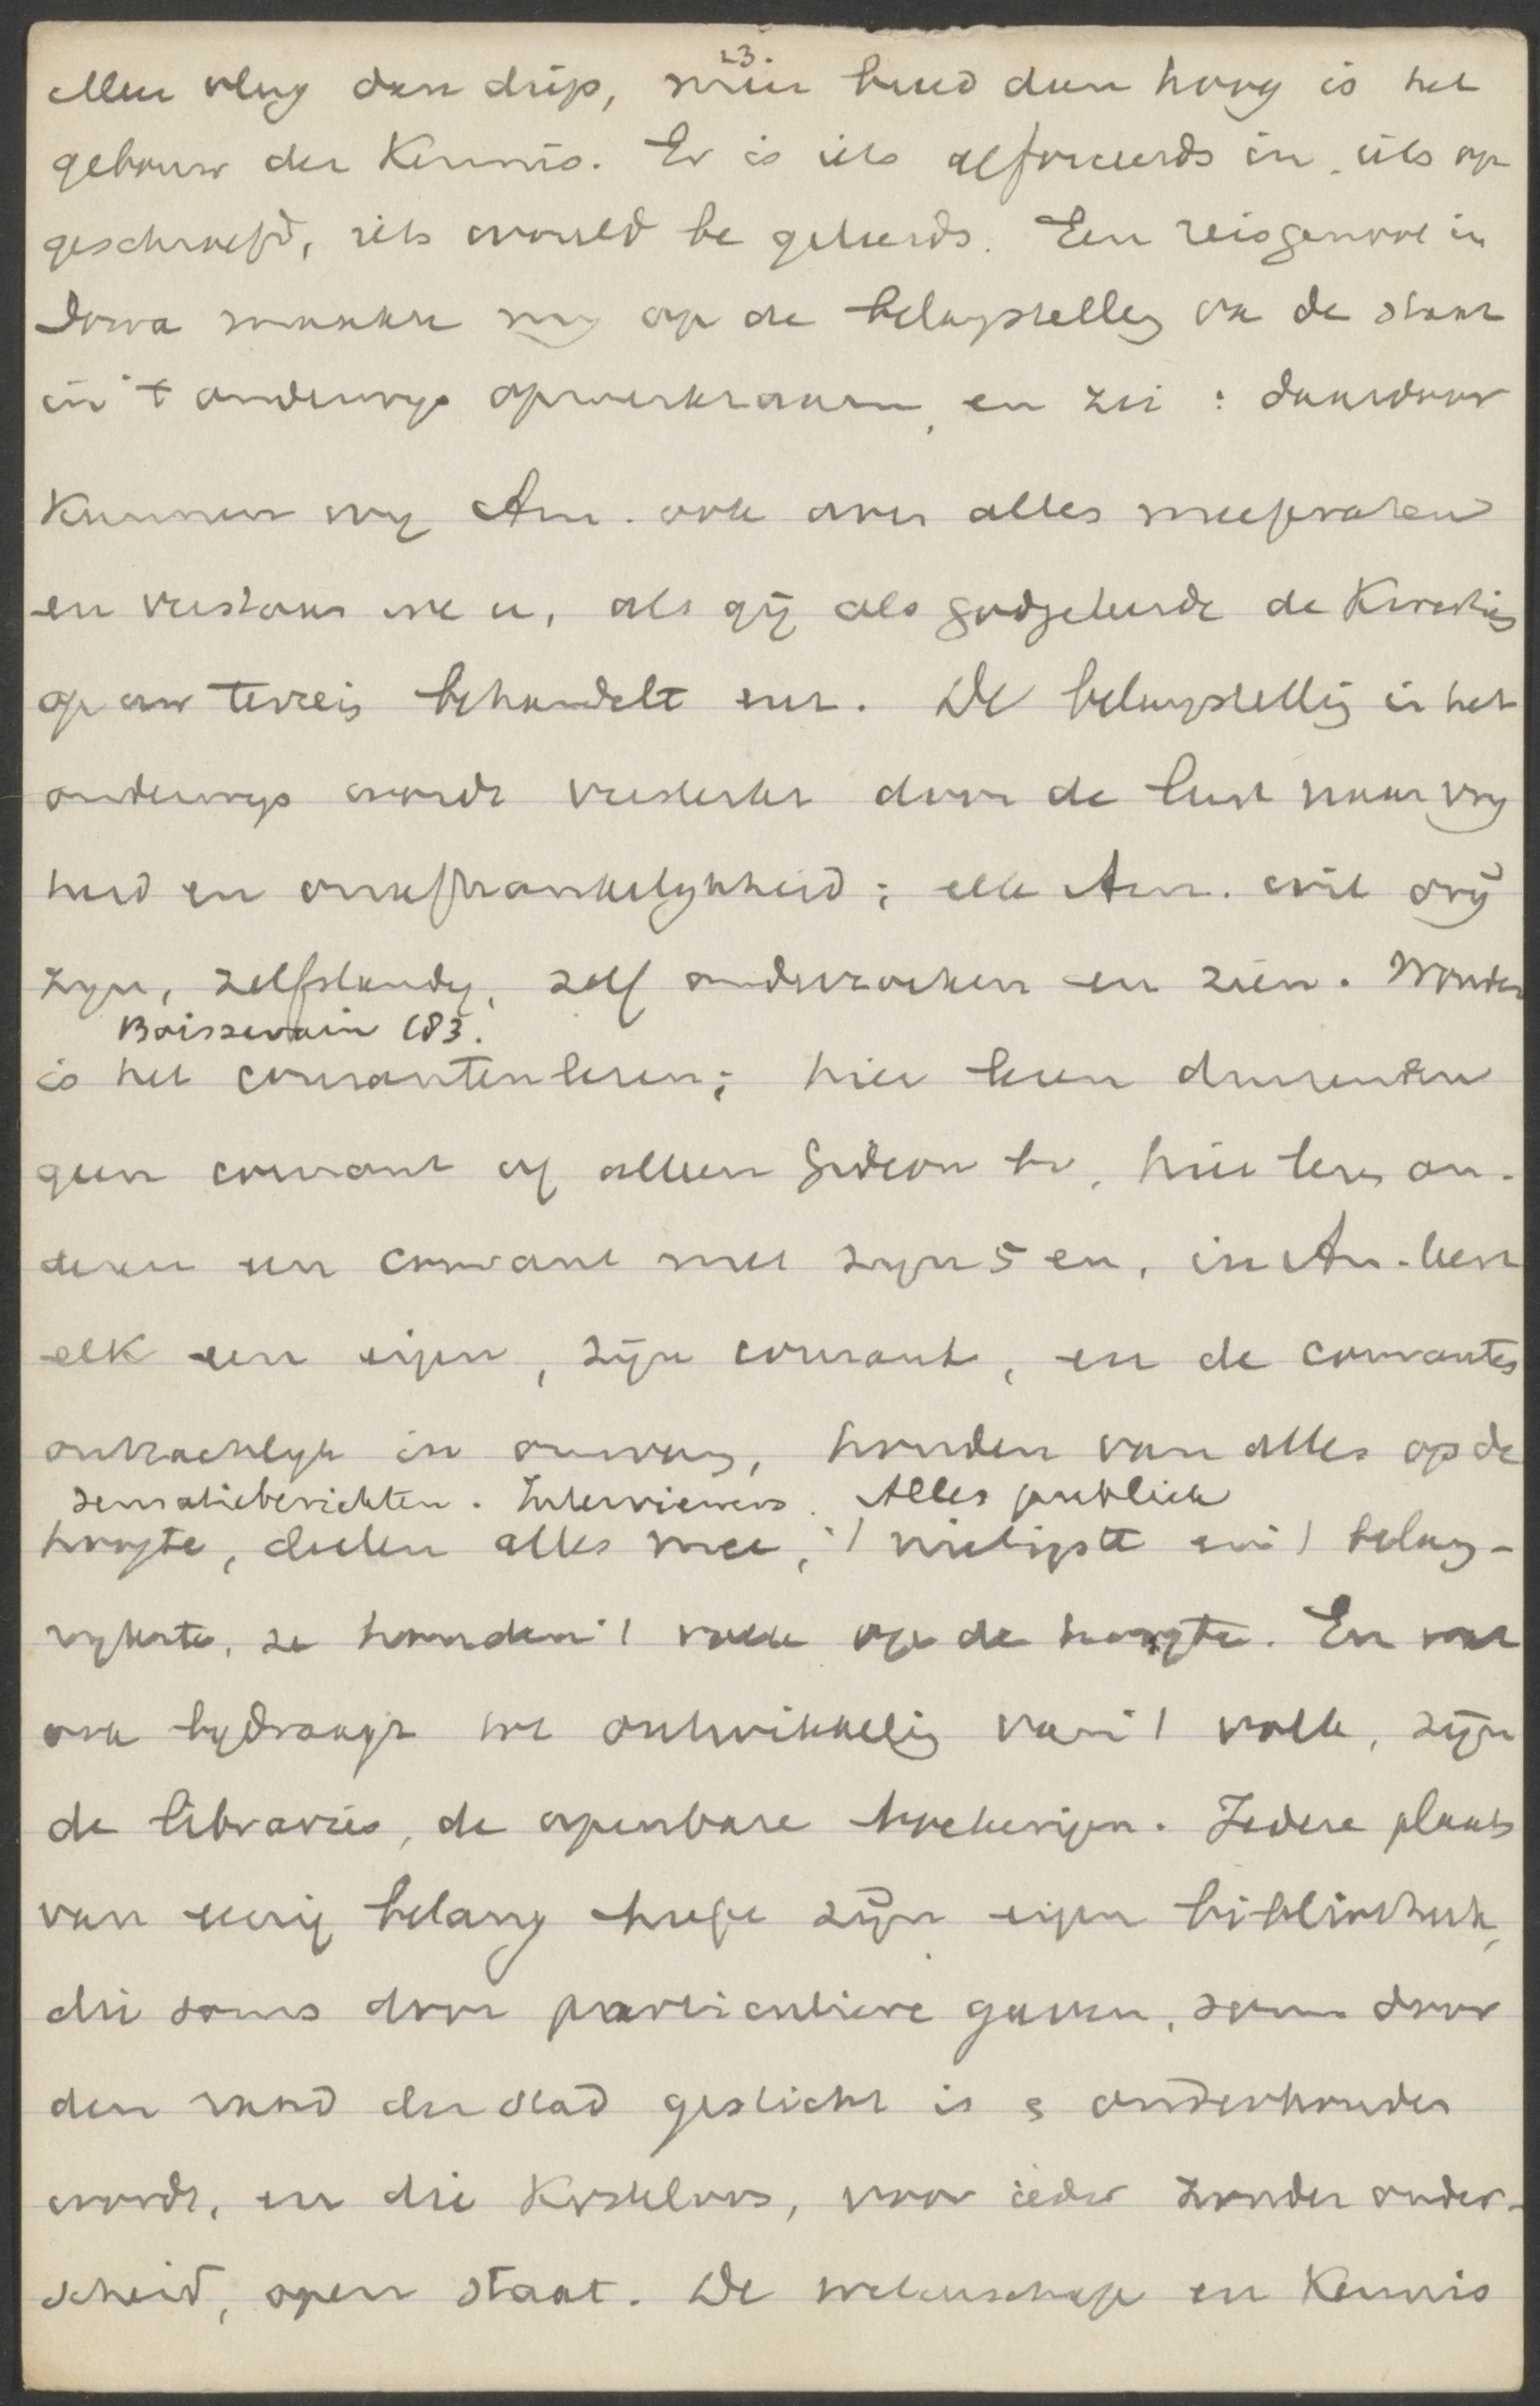 23.
meer vlug dan diep, meer breed dan hoog is het
gebouw der Kennis. Er is iets geforceerds in, iets op
geschroefd, iets would be geleerds. Een reisgenoot in
Iowa maakte my op de belangstelling van de staat
in 't onderwys opmerkzaam, en zei: daardoor
kunnen wy Am. ook over alles meepraten
en verstaan we u, als gij als godgeleerde de Kwesties
op uw terrein behandelt enz. De belangstelling in het
onderwys wordt versterkt door de lust naar vry
heid en onafhankelykheid; elk Am. wil vrij
zyn, zelfstandig, zelf onderzoeken en zien. Wonder
Boissevain 183.
is het couranten lezen; hier lezen duizenden
geen courant of alleen Gideon bv, hier lezen an-
deren een courant met zyn 5 en, in Am. leest
elk een eigen, zijn courant, en de couranten
ontzachlyk in omvang, houden van alles op de
sensatieberichten. Interviewers. Alles publiek
hoogte, deelen alles mee, 't nietigste en 't belang-
rykste, ze houden 't volk op de hoogte. En wat
ook bydraagt tot ontwikkeling van 't volk, zijn
de libraries, de openbare boekeryen. Iedere plaats
van eenig belang heeft zijn eigen bibliotheek,
die soms door particuliere gaven, soms door
den raad der stad gesticht is & onderhouden
wordt, en die Kosteloos, voor ieder zonder onder-
scheid, open staat. De wetenschap en Kennis